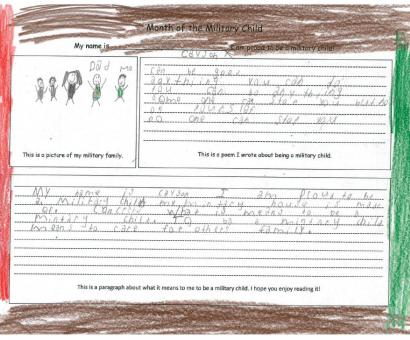 Month of the Military Child
My name is
Cayson
I am proud to be a military child!
Dad Me
can be good
you can do
you can do any thing
no one can stop you
This is a picture of my military family.
This is a poem I wrote about being a military child.
My name is cayson I am proud to be
a Military child my house is made
of What it means to be a
military child. To be a military child
means to care for others family.
This is a paragraph about what it means to me to be a military child. I hope you enjoy reading it!